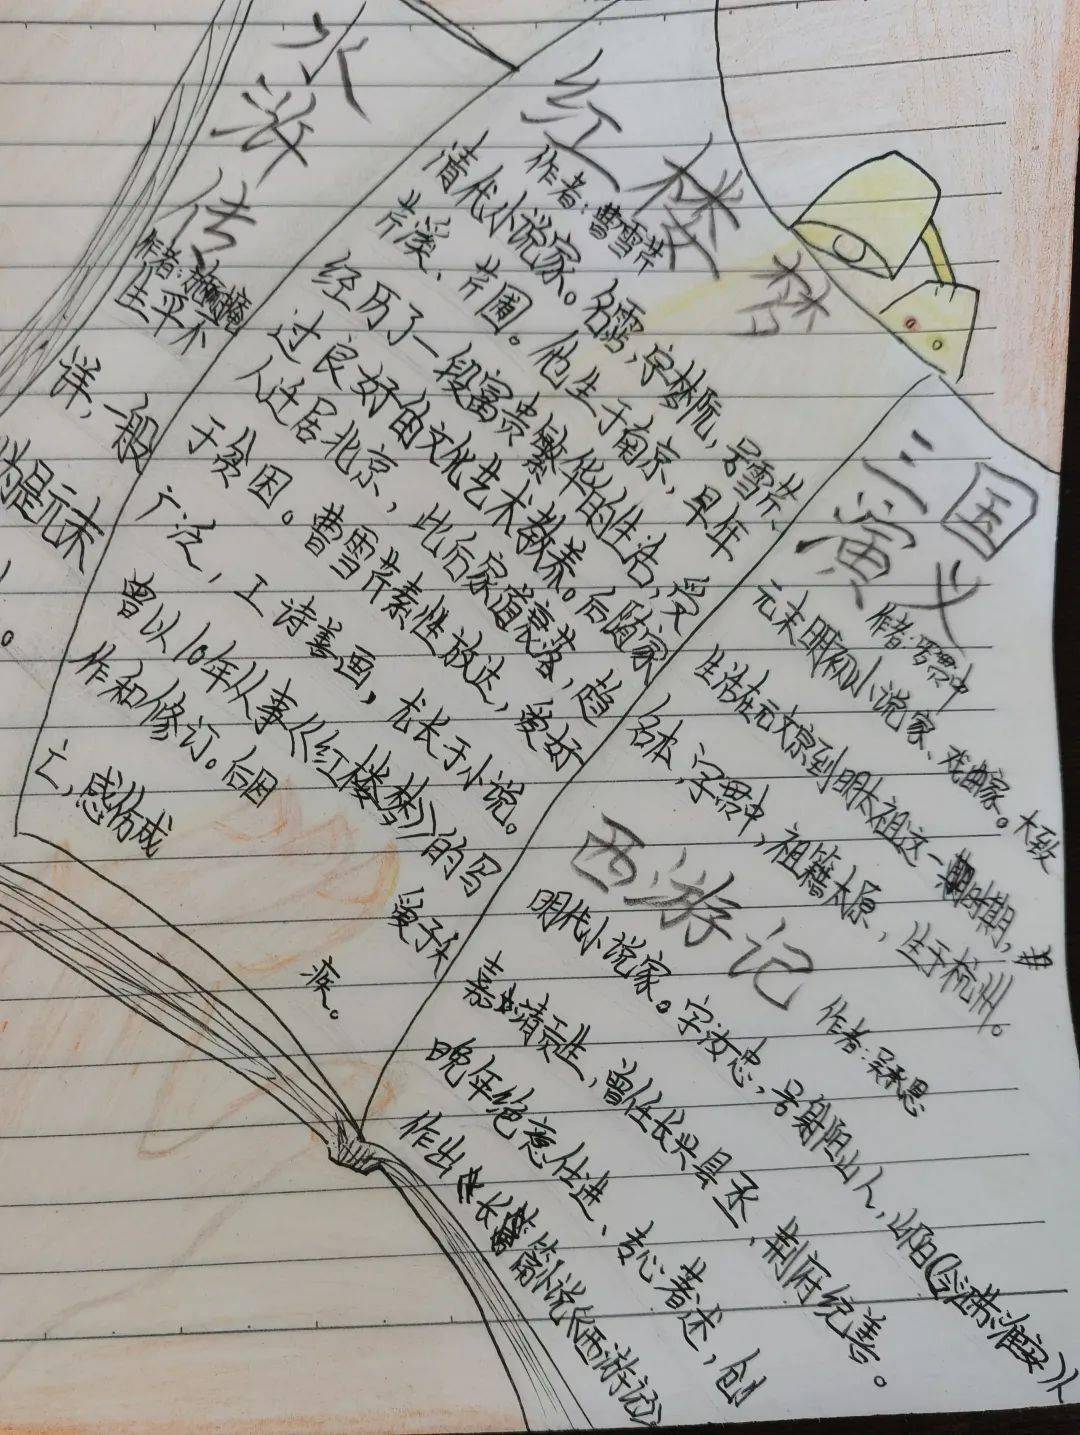 水浒传
作者:施耐庵
生平不
详,一般
为是元末
。
红楼梦
作者:曹雪芹
清代小说家。名霑,字梦阮,号雪芹、
芹溪、芹圃。他生于南京,早年
经历了一段富贵繁华的生活,受
过良好的文化艺术教养。后随家
人迁居北京,此后家道衰落,趋
于贫困。曹雪芹素性放达,爱好
广泛,工诗善画,尤长于小说。
曾以10年从事《红楼梦》的写
作和修订。后因
爱子
亡,感伤成
疾。
三国
演义
作者:罗贯中
元末明初小说家、戏曲家。大致
生活在元文宗到明太祖这一时期,
名本,字贯中,祖籍太原,生于杭州。
西游记
作者:吴承恩
明代小说家。字汝忠,号射阳山人,山阳(今江苏淮安)人
嘉靖贡生,曾任长兴县丞、荆府纪善。
晚年绝意仕进、专心著述,创
作出长篇小说《西游记》